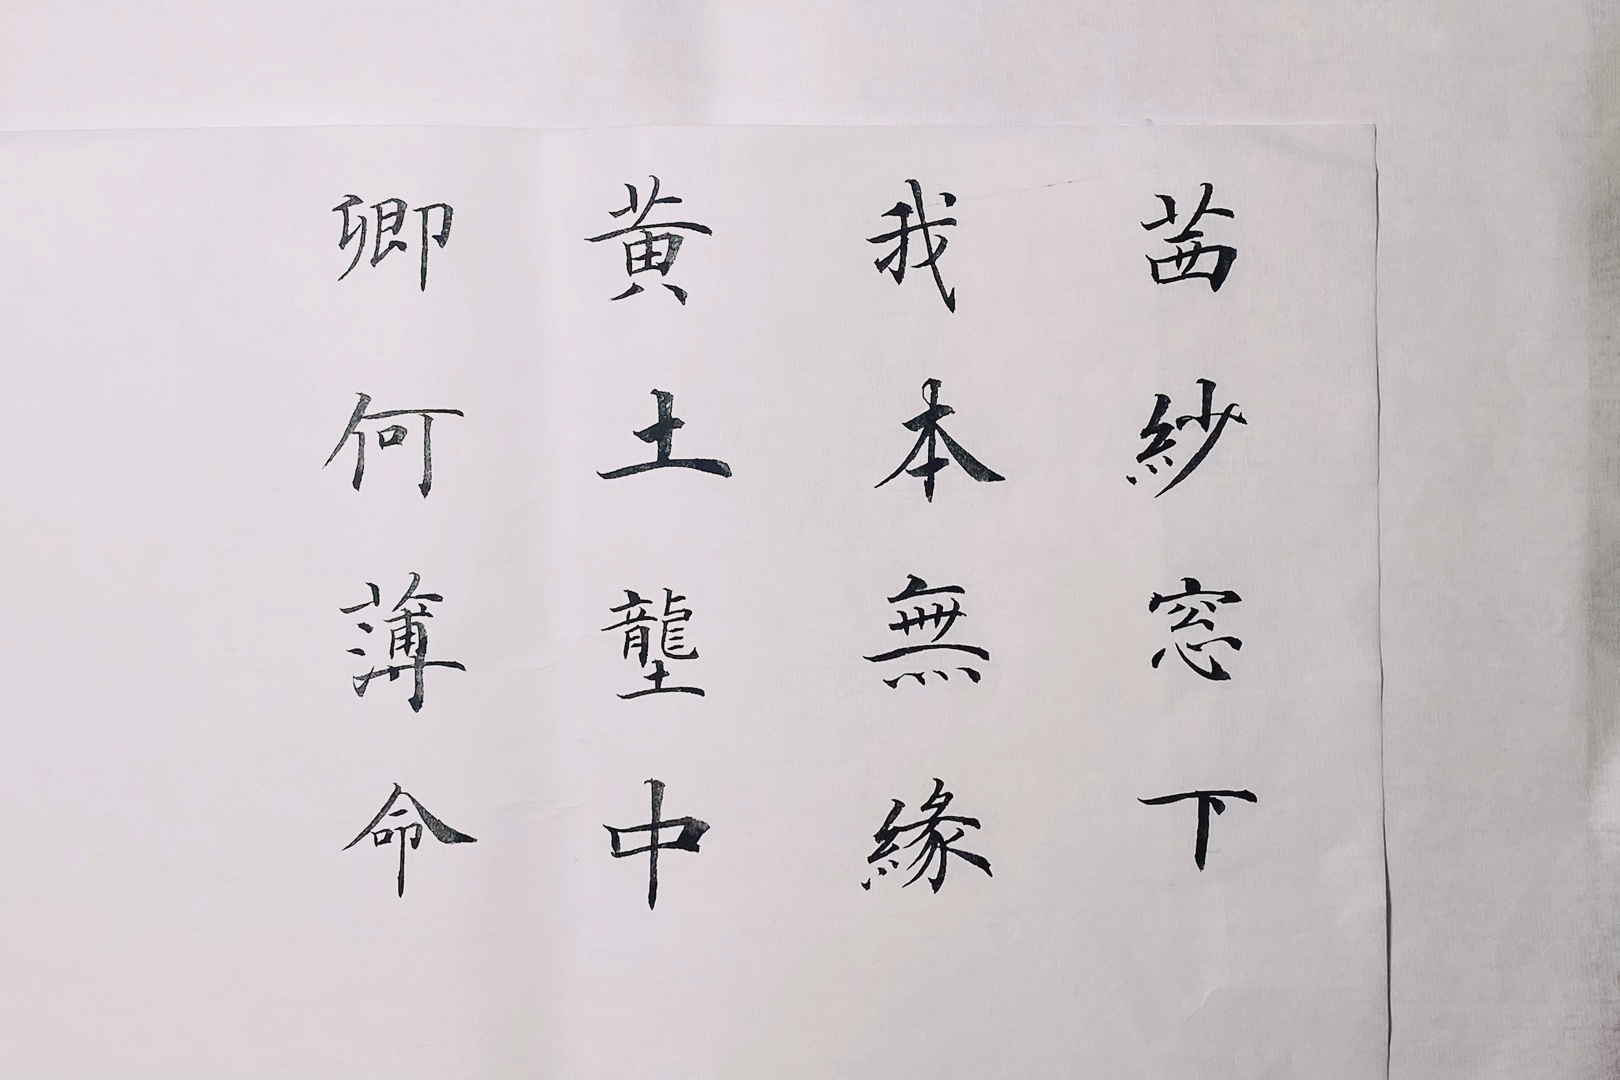 茜紗窓下
我本無緣
黄土壟中
卿何薄命